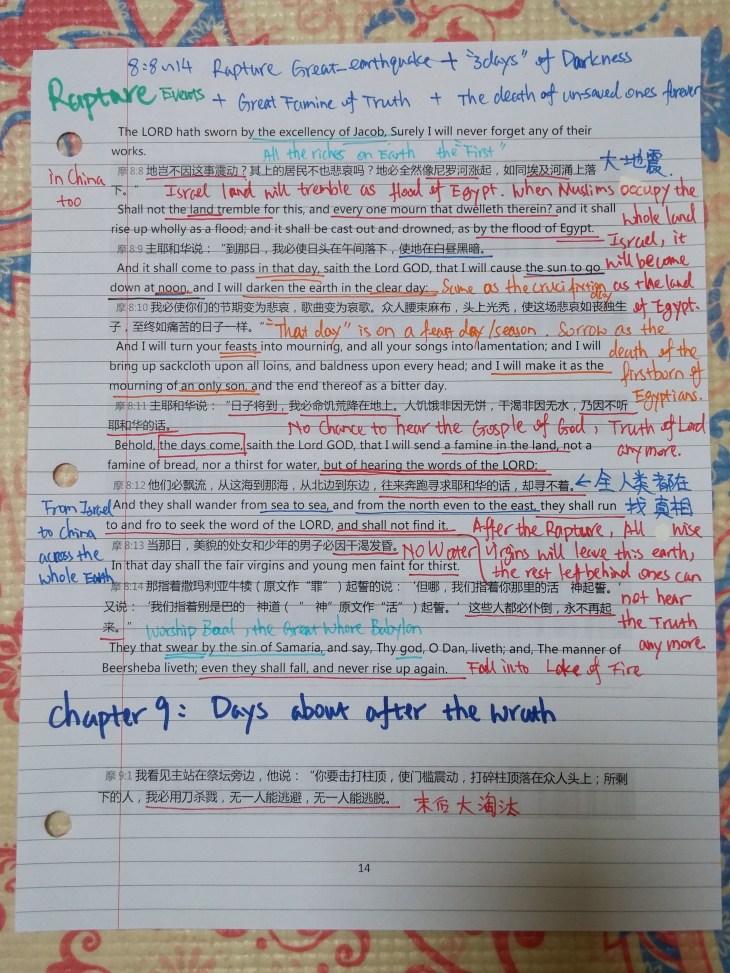 8:8~14 Rapture Great-earthquake + "3days" of Darkness
Rapture Events + Great Famine of Truth + The death of un-saved ones forever
The LORD hath sworn by the excellency of Jacob, Surely I will never forget any of their
works.
All the riches on Earth the "First"
摩 8:8 地岂不因这事震动？其上的居民不也悲哀吗？地必全然像尼罗河涨起，如同埃及河涌上落
下。”
大地震.
in China
too
Israel land will tremble as flood of Egypt. When Muslims occupy the
whole land
Israel, it
will become
as the land
of Egypt.
Shall not the land tremble for this, and every one mourn that dwelleth therein? and it shall
rise up wholly as a flood; and it shall be cast out and drowned, as by the flood of Egypt.
摩 8:9 主耶和华说：“到那日，我必使日头在午间落下，使地在白昼黑暗。
And it shall come to pass in that day, saith the Lord GOD, that I will cause the sun to go
down at noon, and I will darken the earth in the clear day:
Same as the crucifixion day
摩 8:10 我必使你们的节期变为悲哀，歌曲变为哀歌。众人腰束麻布，头上光秃，使这场悲哀如丧独生
子，至终如痛苦的日子一样。”
"That day" is on a feast day/season. Sorrow as the
death of the
firstborn of
Egyptians.
And I will turn your feasts into mourning, and all your songs into lamentation; and I will
bring up sackcloth upon all loins, and baldness upon every head; and I will make it as the
mourning of an only son, and the end thereof as a bitter day.
摩 8:11 主耶和华说：“日子将到，我必命饥荒降在地上。人饥饿非因无饼，干渴非因无水，乃因不听
耶和华的话。
No chance to hear the Gosple of God, Truth of Lord
any more.
Behold, the days come, saith the Lord GOD, that I will send a famine in the land, not a
famine of bread, nor a thirst for water, but of hearing the words of the LORD:
摩 8:12 他们必飘流，从这海到那海，从北边到东边，往来奔跑寻求耶和华的话，却寻不着。
←全人类都在
找真相
From Israel
to China
across the
whole Earth
And they shall wander from sea to sea, and from the north even to the east, they shall run
to and fro to seek the word of the LORD, and shall not find it.
After the Rapture, All wise
virgins will leave this earth,
the rest left behind ones can
not hear
the Truth
any more.
摩 8:13 当那日，美貌的处女和少年的男子必因干渴发昏。
No Water
In that day shall the fair virgins and young men faint for thirst.
摩 8:14 那指着撒玛利亚牛犊（原文作“罪”）起誓的说：‘但哪，我们指着你那里的活 神起誓。’
又说：‘我们指着别是巴的 神道（“ 神”原文作“活”）起誓。’这些人都必仆倒，永不再起
来。”
Worship Baal, the Great Whore Babylon
They that swear by the sin of Samaria, and say, Thy god, O Dan, liveth; and, The manner of
Beersheba liveth; even they shall fall, and never rise up again.
Fall into Lake of Fire
Chapter 9: Days about after the wrath
摩 9:1 我看见主站在祭坛旁边，他说：“你要击打柱顶，使门槛震动，打碎柱顶落在众人头上；所剩
下的人，我必用刀杀戮，无一人能逃避，无一人能逃脱。
末后大淘汰
14